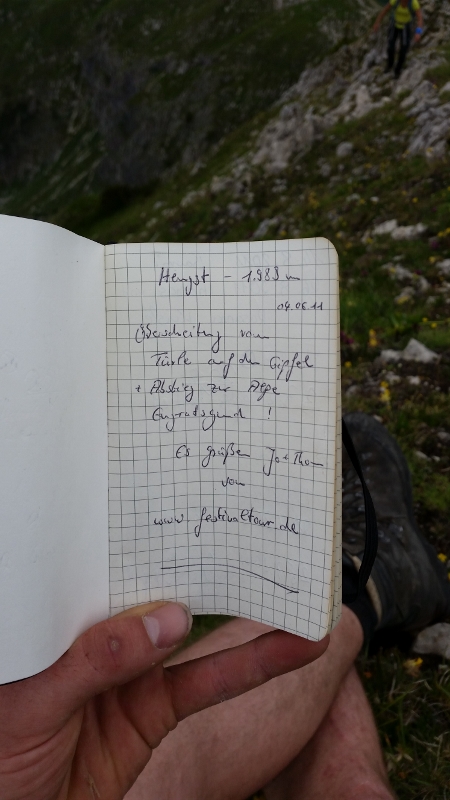 Hengst - 1.989 m
04.06.11
Überschreitung vom
Türle auf den Gipfel
+ Abstieg zur Alpe
Engratsgund !
Es grüßen Jo + Thom
von
www.festivaltour.de